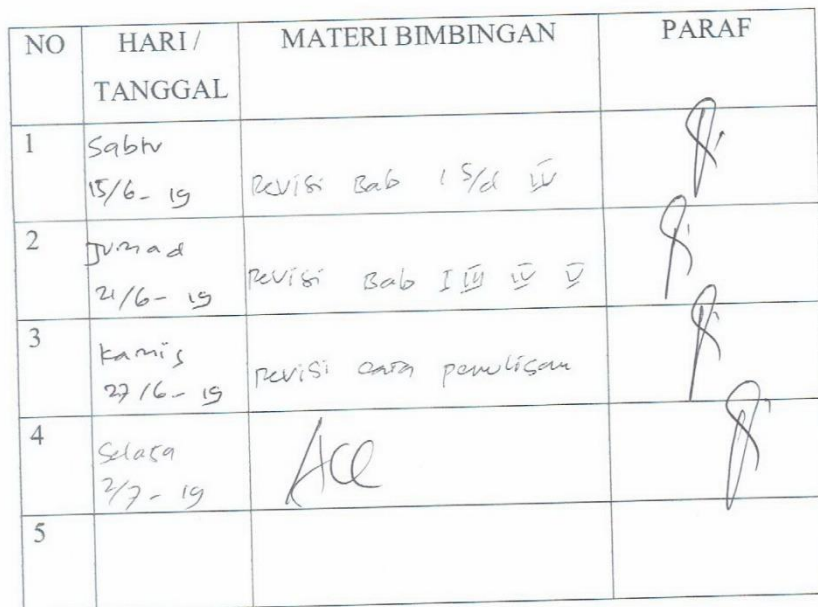 NO HARI / MATERI BIMBINGAN PARAF
TANGGAL
1 Sabtu
15/6- 19 Revisi Bab I S/d IV
2 Jumad
21/6- 19 Revisi Bab I III IV V
3 Kamis
27/6- 19 Revisi cara penulisan
4 Selasa ACC
2/7- 19
5